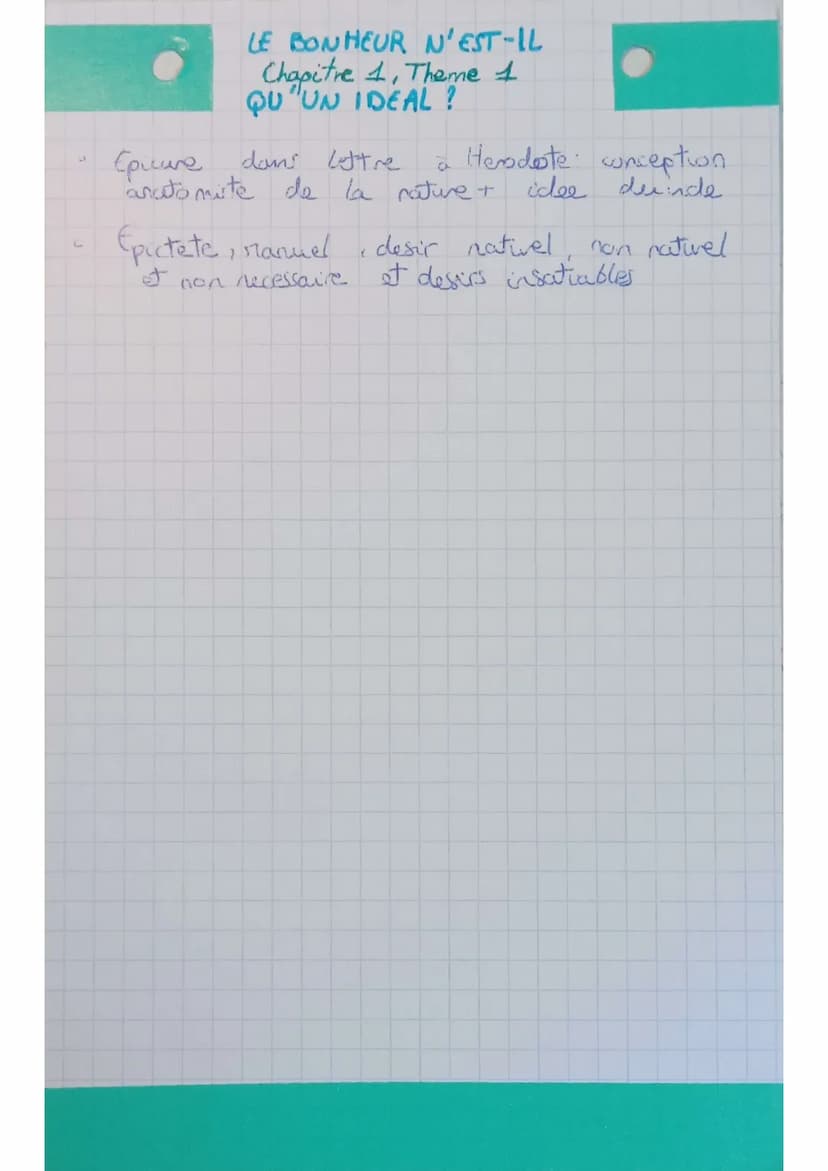 LE BONHEUR N'EST-IL
Chapitre 1, Theme 1
QU'UN IDEAL ?
Epicure dans lettre à Herodote: conception
de la nature + idee
Epictete, manuel, desir naturel, non naturel
et non necessaire et desirs insatiables